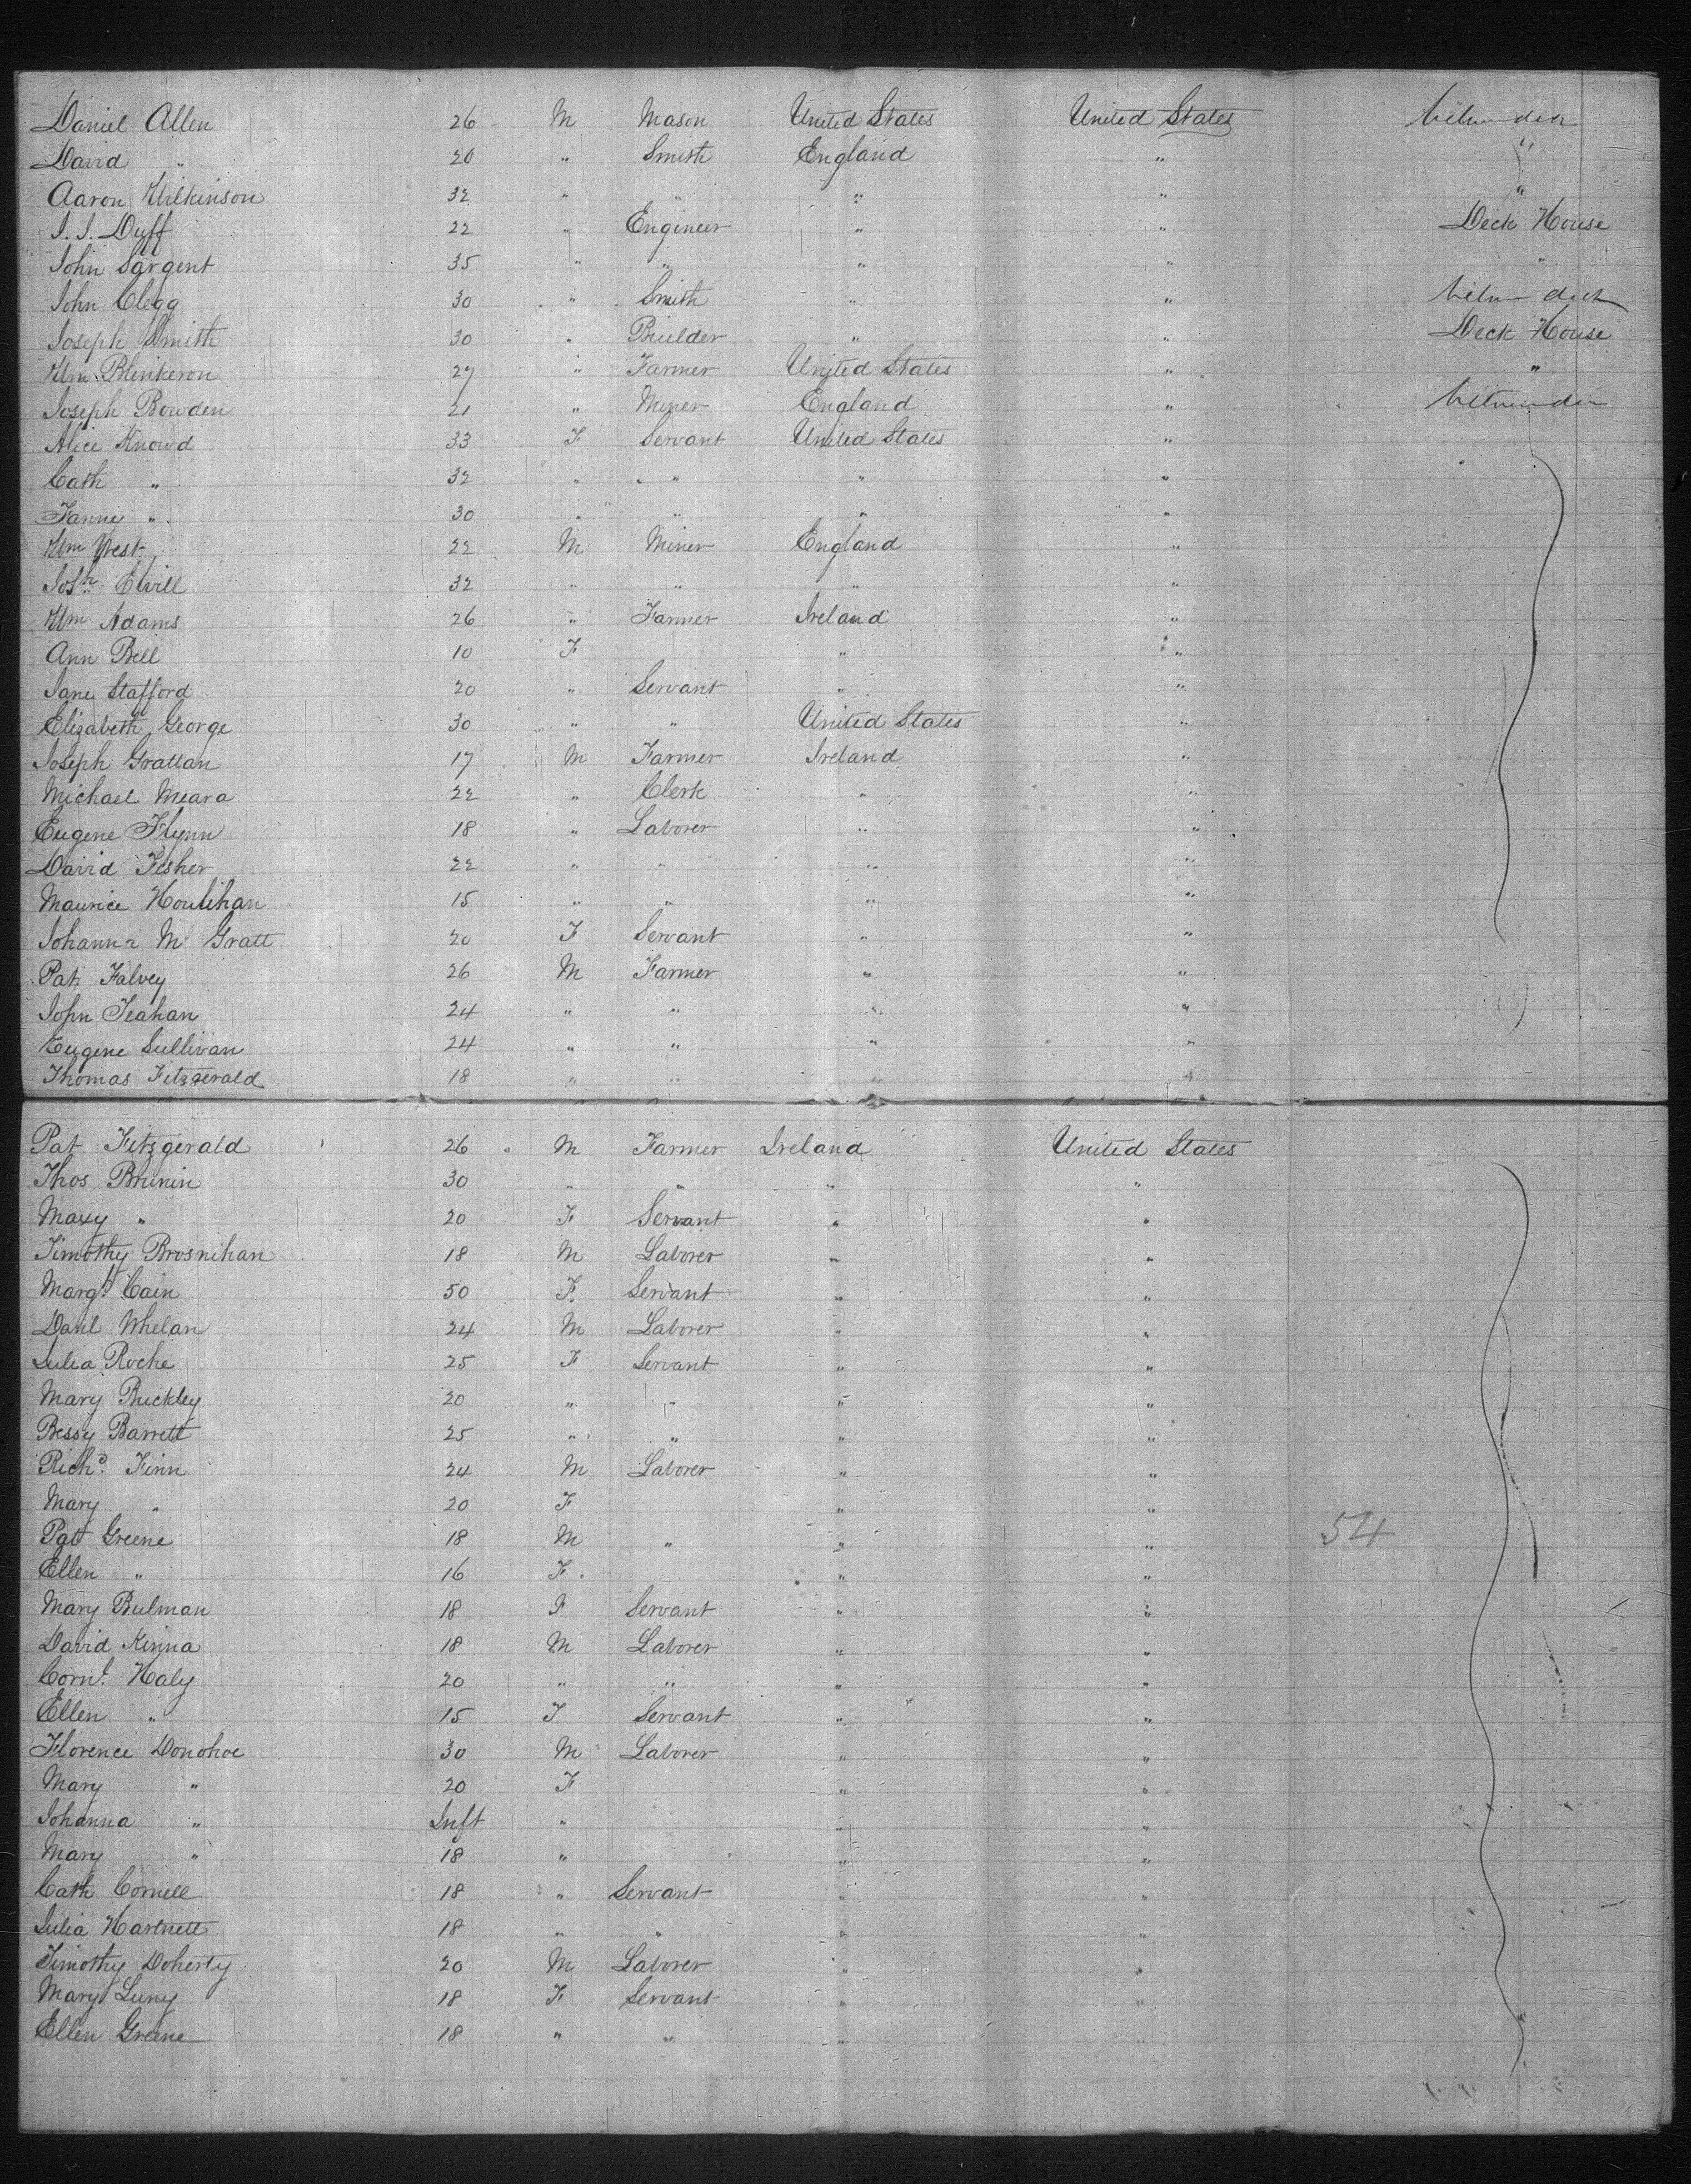 Daniel Allen 26 M Mason United States United States
David " 20 " Smith England " "
Aaron Wilkinson 32 " " " " "
J. J. Duff 22 " Engineer " " Deck House
John Sargent 35 " " " " "
John Clegg 30 " Smith " "
Joseph Smith 30 " Builder " " Deck House
Wm. Blinkeron 27 " Farmer United States " "
Joseph Bowden 21 " Miner England "
Alice Knowd 33 F Servant United States "
Cath " 32 " " " "
Fanny " 30 " " " "
Wm West 22 M Miner England "
Josh. Elvill 32 " " " "
Wm Adams 26 " Farmer Ireland "
Ann Bell 10 F " "
Jane Stafford 20 " Servant " "
Elizabeth George 30 " " United States "
Joseph Grattan 17 M Farmer Ireland "
Michael Meara 22 " Clerk " "
Eugene Flynn 18 " Laborer " "
David Fisher 22 " " " "
Maurice Houlihan 15 " " " "
Johanna Mc Gratt 20 F Servant " "
Pat Falvey 26 M Farmer " "
John Teahan 24 " " " "
Eugene Sullivan 24 " " " "
Thomas Fitzgerald 18 " " " "
Pat Fitzgerald 26 M Farmer Ireland United States
Thos Brunin 30 " " " "
Maxy " 20 F Servant " "
Timothy Brosnihan 18 M Laborer " "
Margt. Cain 50 F. Servant " "
Danl Whelan 24 M Laborer " "
Julia Roche 25 F Servant " "
Mary Buckley 20 " " " "
Bessy Barrett 25 " " " "
Richd. Finn 24 M Laborer " "
Mary " 20 F " "
Pat Greene 18 M " " " 54
Ellen " 16 F. " "
Mary Bulman 18 F Servant " "
David Kinna 18 M Laborer " "
Cornl. Haly 20 " " " "
Ellen " 15 F Servant " "
Florence Donohoe 30 M Laborer " "
Mary " 20 F " "
Johanna " Inft " " "
Mary " 18 " " "
Cath Cornell 18 " Servant " "
Julia Hartnett 18 " " " "
Timothy Doherty 20 M Laborer " "
Mary Luny 18 F Servant " "
Ellen Greene 18 " " " "